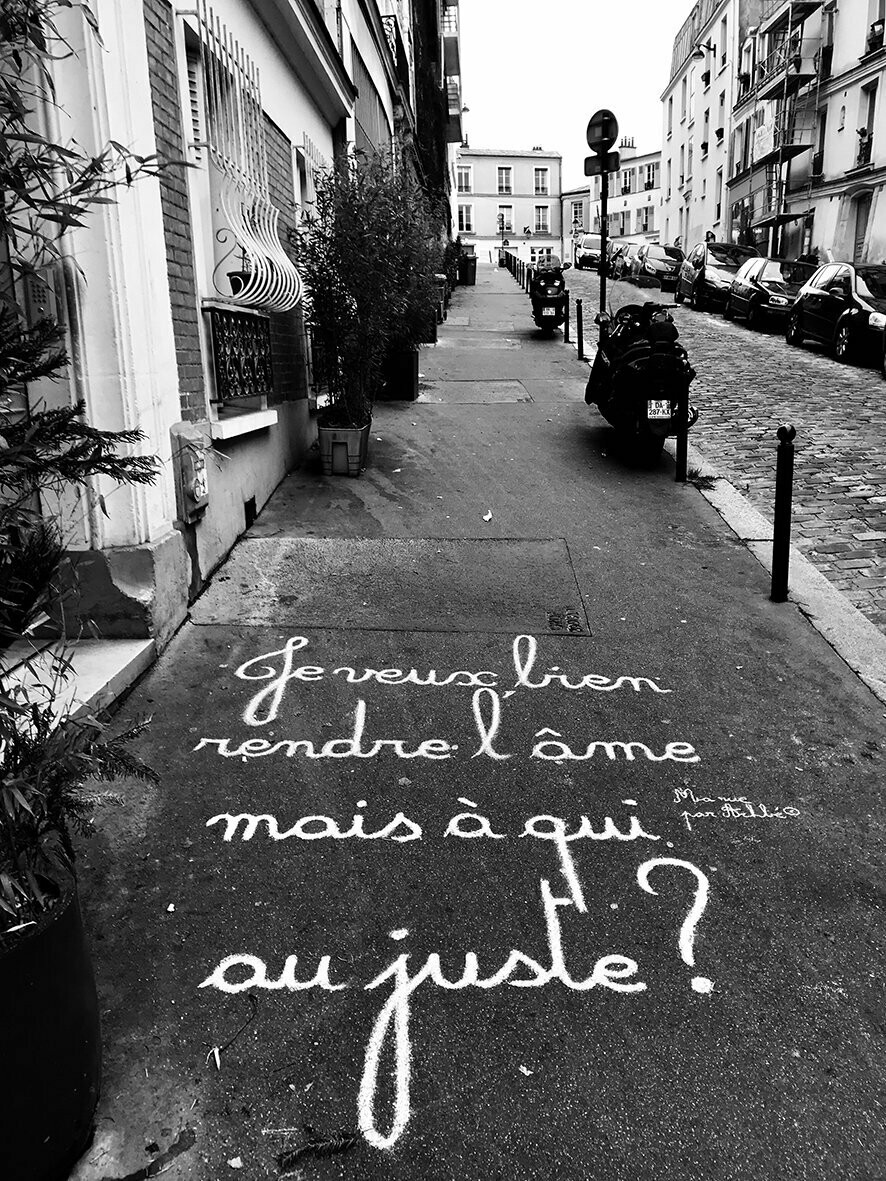 Je veux bien
rendre l'âme
mais à qui
au juste ?
Ma rue
par Achbé©
DA
287-KX